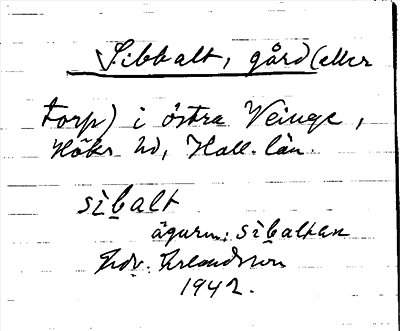 Sibbalt, gård (eller
torp) i östra Veinge,
Höks hd, Hall. län.
sìbalt
ägarn: sìbaltan
Edv. Erlandsson
1942.